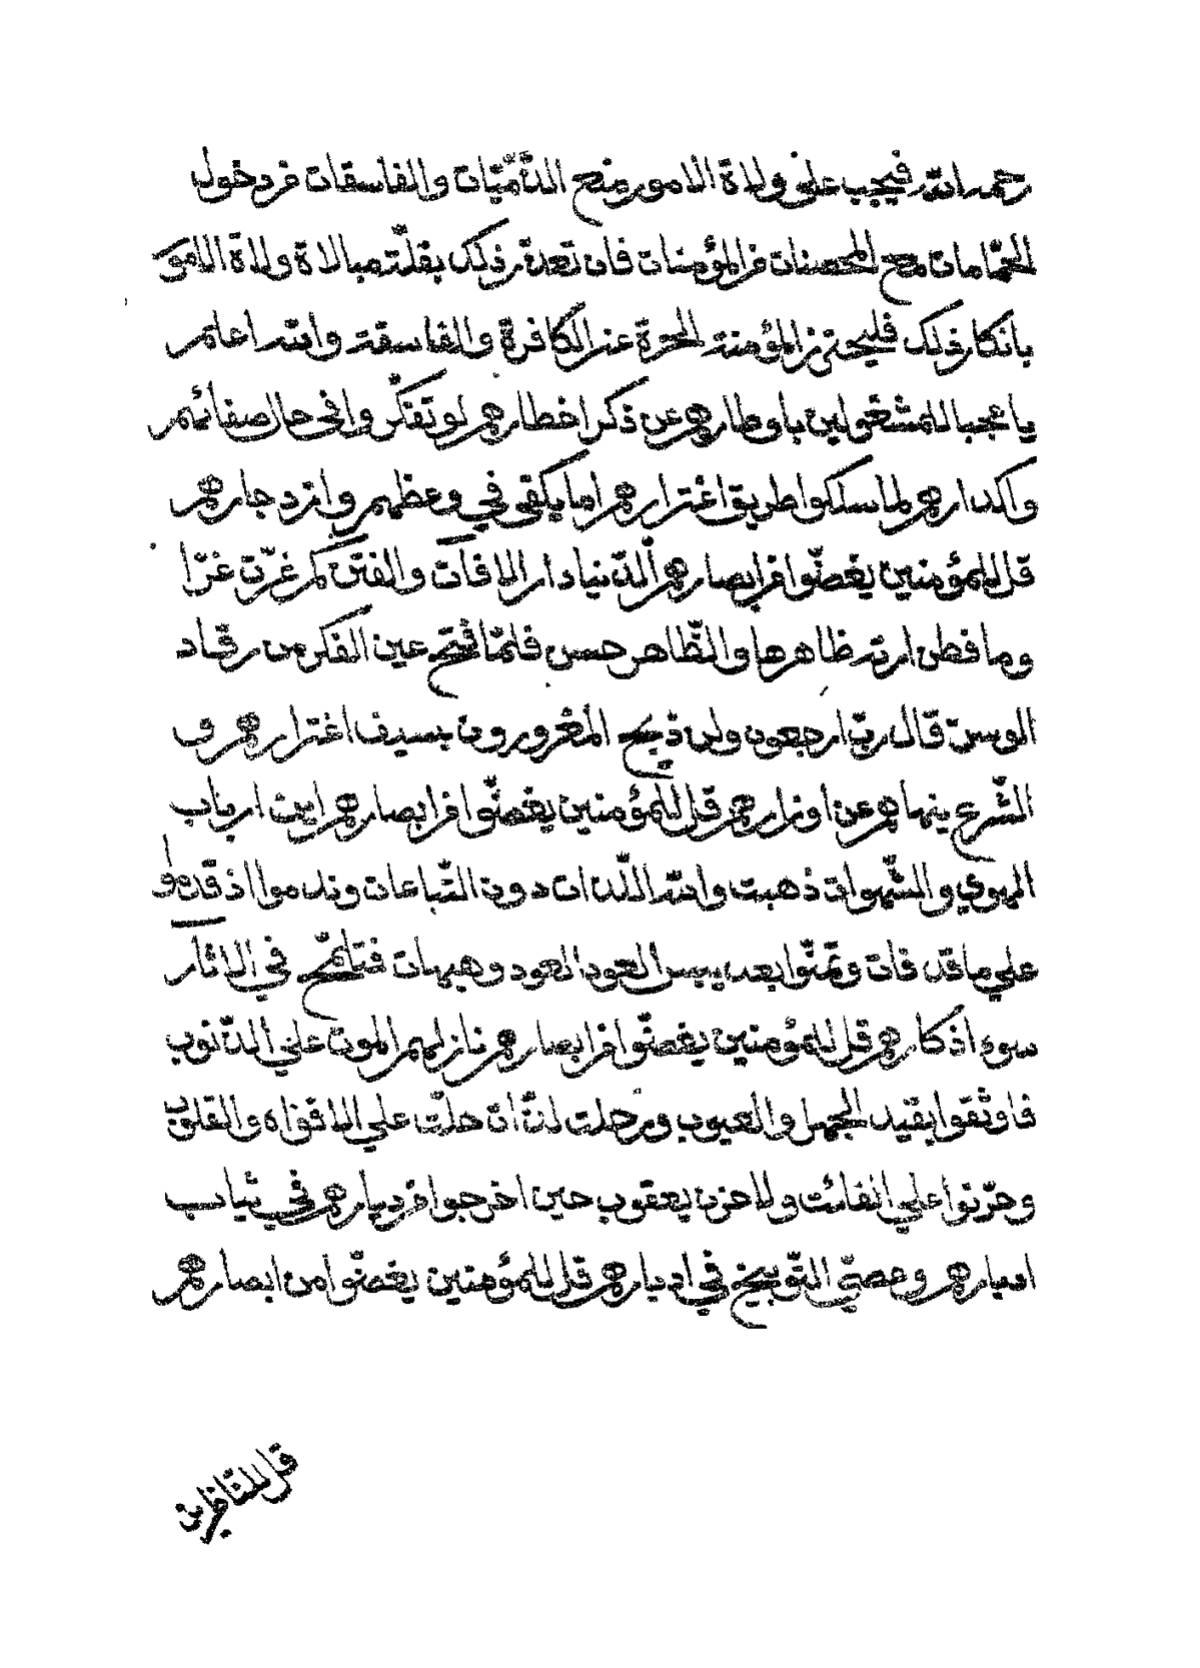 رحمه الله فيجب على ولاة الامور منع الذّمّيّات والفاسقات من دخول
الحمّامات مع المحصنات من المؤمنات فان تعذّر ذلك بقلّة مبالاة ولاة الامور
بانكار ذلك فليحترز المؤمنة الحرّة عن الكافرة والفاسقة والله اعلم
يا عجبا للمشغولين باوطارهم عن ذكر اخطارهم لو تفكّروا في حال صفائهم
واكدارهم لما سلكوا طريق اغترارهم اما يكفي في وعظهم وازدجارهم
قل للمؤمنين يغضّوا من ابصارهم الدّنيا دار الافات والفتن كم غرّت غرّا
وما فطن ارته ظاهرها والظّاهر حسن فلمّا فتح عين الفكر من رقاد
الوسن قال ربّ ارجعون ولن ذبح المغرورون بسيف اغترارهم و
الشّرع ينهاهم عن اوزارهم قل للمؤمنين يغضّوا من ابصارهم اين ارباب
الهوي والشّهوات ذهبت والله اللّذات دون التّباعات وندموا اذ قدموا
علي ما قد فات وتمنّوا بعد يبس العود العود وهيهات فتلمّح في الاثار
سوء اذكارهم قل للمؤمنين يغضّوا من ابصارهم نازلهم الموت علي الذّنوب
فاوثقوا بقيد الجهل والعيوب ورحلت لذّات حلّت علي الافواه والقلوب
وحزنوا علي الفائت ولا حزن يعقوب حين اخرجوا من ديارهم في ثياب
ادبارهم وعصيّ التّوبيخ في ادبارهم قل للمؤمنين يغضّوا من ابصارهم